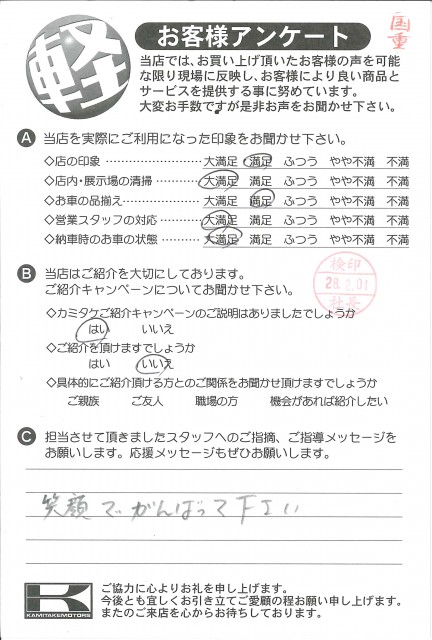 軽
お客様アンケート
国重
当店では、お買い上げ頂いたお客様の声を可能
な限り現場に反映し、お客様により良い商品と
サービスを提供する事に努めています。
大変お手数ですが是非お声をお聞かせ下さい。
A 当店を実際にご利用になった印象をお聞かせ下さい。
◇店の印象 ‥‥‥‥‥‥‥‥ 大満足 満足 ふつう やや不満 不満
◇店内・展示場の清掃‥‥‥‥ 大満足 満足 ふつう やや不満 不満
◇お車の品揃え‥‥‥‥‥‥‥ 大満足 満足 ふつう やや不満 不満
◇営業スタッフの対応‥‥‥‥ 大満足 満足 ふつう やや不満 不満
◇納車時のお車の状態‥‥‥‥ 大満足 満足 ふつう やや不満 不満
検印
28.2.01
社長
B 当店はご紹介を大切にしております。
ご紹介キャンペーンについてお聞かせ下さい。
◇カミタケご紹介キャンペーンのご説明はありましたでしょうか
はい いいえ
◇ご紹介を頂けますでしょうか
はい いいえ
◇具体的にご紹介頂ける方とのご関係をお聞かせ頂けますでしょうか
ご親族 ご友人 職場の方 機会があれば紹介したい
C 担当させて頂きましたスタッフへのご指摘、ご指導メッセージを
お願いします。応援メッセージもぜひお願いします。
笑顔でがんばって下さい
K
KAMITAKEMOTORS
ご協力に心よりお礼を申し上げます。
今後とも宜しくお引き立てご愛顧の程お願い申し上げます。
またのご来店を心からお待ちしております。